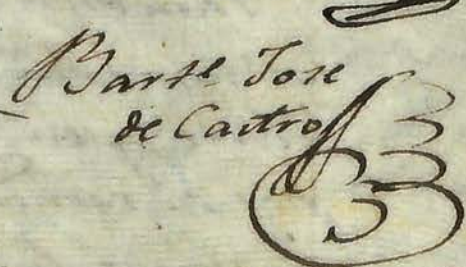 Barte Jose
de Castro